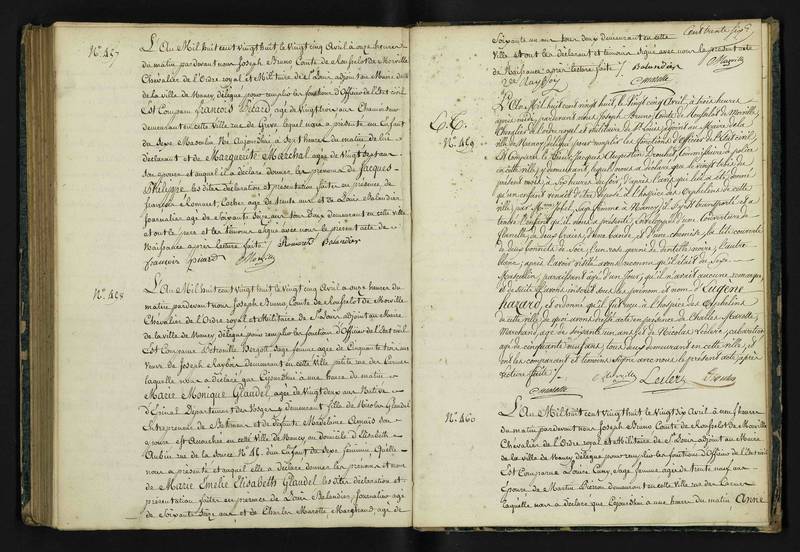 N.º 457
L'An Mil huit cent vingt huit le vingt cinq Avril à onze heures
du matin pardevant nous Joseph Bruno Comte de Ronfelot de Morville
Chevalier de l'Ordre royal et Militaire de St Louis, adjoint au Maire de
de la ville de Nancy délégué pour remplir les fonctions d'Officier de l'Etat civil
Est Comparu françois Picard agé de Vingt trois ans
demeurant en cette Ville rue de Grève lequel nous a présenté un Enfant
du sexe Masculin Né Aujourd'hui à sept heures du matin de lui
déclarant et de Marguerite Marchal agée de Vingt sept ans
son épouse et auquel il a déclaré donner les prénoms de Jacques-
Philippe les dites déclaration et présentation faites en présence de
françois Lemaret, Cocher agé de trente ans et de Louis Balandier
Journalier agé de Soixante Seize ans tous Deux demeurant en cette ville
et ont le père et les témoins Signé avec nous le présent acte de
Naissance après lecture faite /. Balandier
françois picard Morville
N.º 458
L'An Mil huit cent vingt huit le vingt cinq Avril à onze heures du
matin pardevant nous Joseph Bruno Comte de Ronfelot de Morville
Chevalier de l'Ordre royal et Militaire de St Louis adjoint au Maire
de la ville de Nancy délégué pour remplir les fonctions d'Officier de l'Etat civil
Est Comparue Petronille Bergott Sage femme agée de Cinquante trois ans
Veuve de Joseph demeurant en cette Ville petite rue des Carmes
laquelle nous a déclaré que Cejourd'hui à une heure du matin
Marie Monique Glaudel, agée de Vingt deux ans Native
d'Epinal Département des Vosges y demeurant fille de Nicolas Glaudel
Entrepreneur de Bâtimens et de défunte Madeleine son
épouse est Accouchée en cette Ville de Nancy au domicile d'Elisabeth
Aubin rue de la source N.º d'un Enfant du Sexe féminin Qu'elle
nous a présenté et auquel elle a déclaré donner les prénoms et nom
de Marie Emelie Elisabeth Glaudel les dites déclaration et
présentation faites en présence de Louis Balandier, Journalier agé
de Soixante Seize ans et de Charles Marotte Marchand, agé de
Cent trente
Soixante un ans tous deux demeurant en cette
Ville et ont les déclarant et témoins Signé avec nous le présent acte
de Naissance après lecture faite /. Balandier Morville
Marotte
N.º 459
L'An Mil huit cent vingt huit, le Vingt cinq Avril, à trois heures
après midi, pardevant nous Joseph Bruno Comte de Ronfelot de Morville,
Chevalier de l'ordre royal et militaire de St Louis, adjoint au Maire de la
ville de Nancy délégué pour remplir les fonctions d'officier de l'Etat civil,
Est Comparu le Sieur Jacques Augustin commissaire de police
en cette ville, y demeurant, lequel nous a déclaré que le vingt trois du
présent mois à six heures du soir, d'après l'avis qui lui a été donné
qu'un enfant venait d'être déposé à l'hospice des Orphelins de cette
ville, par sage femme à Nancy, il s'y est transporté et a
trouvé l'enfant qu'il nous a présenté, enveloppé d'une couverture de
flanelle, de deux draps, d'une bande, et d'une chemise, la tête couverte
de deux bonnets de soie, l'un rose garni de dentelle noire, l'autre
blanc, après l'avoir visité avons reconnu qu'il était du sexe
Masculin, paraissant agé d'un jour, qu'il n'avait aucune remarque,
et de suite l'avons inscrit sous les prénom et nom d'Eugène
hazard, et ordonné qu'il fut reçu à l'hospice des Orphelins
de cette ville, de quoi avons dressé acte en présence de Charles Marotte,
Marchand, agé de soixante un ans, et de Nicolas Leclerc,
agé de cinquante neuf ans, tous deux demeurant en cette ville, et
ont les comparant et témoins signé avec nous le présent acte, après
lecture faite /. Morville Leclerc
Marotte
N.º 460
L'An Mil huit cent vingt huit le Vingt six Avril à neuf heures
du matin pardevant nous Joseph Bruno Comte de Ronfelot de Morville
Chevalier de l'Ordre royal et Militaire de St Louis adjoint au Maire
de la ville de Nancy délégué pour remplir les fonctions d'Officier de l'Etat civil
Est Comparue Louise Cuny, sage femme agée de trente neuf ans
Epouse de Martin Pierron demeurant en cette Ville rue des Carmes
laquelle nous a déclaré que Cejourd'hui à une heure du matin, Anne